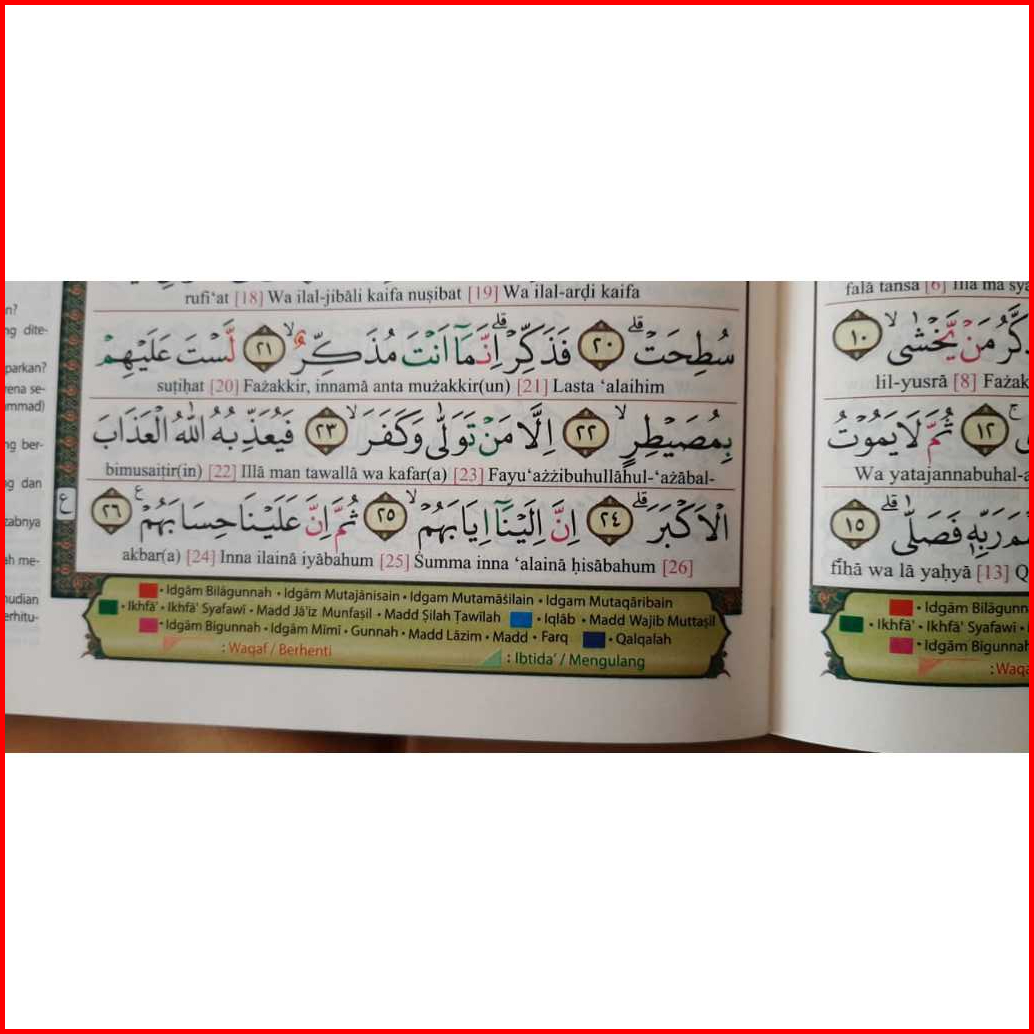 rufi‘at [18] Wa ilal-jibāli kaifa nuṣibat [19] Wa ilal-arḍi kaifa
سُطِحَتْۗ ٢٠ فَذَكِّرْۗ اِنَّمَآ اَنْتَ مُذَكِّرٌۙ ٢١ لَّسْتَ عَلَيْهِمْ
suṭiḥat [20] Fażakkir, innamā anta mużakkir(un) [21] Lasta ‘alaihim
بِمُصَيْطِرٍۙ ٢٢ اِلَّا مَنْ تَوَلّٰى وَكَفَرَۙ ٢٣ فَيُعَذِّبُهُ اللّٰهُ الْعَذَابَ
bimusaiṭir(in) [22] Illā man tawallā wa kafar(a) [23] Fayu‘ażżibuhullāhul-‘ażābal-
الْاَكْبَرَۗ ٢٤ اِنَّ اِلَيْنَآ اِيَابَهُمْۙ ٢٥ ثُمَّ اِنَّ عَلَيْنَا حِسَابَهُمْ ࣖ ٢٦
ع
akbar(a) [24] Inna ilainā iyābahum [25] Ṡumma inna ‘alainā ḥisābahum [26]
• Idgām Bilāgunnah • Idgām Mutajānisain • Idgam Mutamāṡilain • Idgam Mutaqāribain
• Ikhfā' • Ikhfā' Syafawi • Madd Jā'iz Munfasil • Madd Ṣilah Ṭawīlah • Iqlāb • Madd Wajib Muttaṣil
• Idgām Bigunnah • Idgām Mīmī • Gunnah • Madd Lāzim • Madd • Farq • Qalqalah
: Waqaf / Berhenti : Ibtida’ / Mengulang
n?
ng dite-
parkan?
ena se-
mmad)
ng ber-
g dan
ah me-
nudian
erhitu-
falā tansā [6] Illā mā sya
كَّرُ مَنْ يَّخْشٰىۙ ١٠
lil-yusrā [8] Fażak
١٢ ثُمَّ لَا يَمُوْتُ
Wa yatajannabuhal-a
رَبِّهٖ فَصَلّٰىۗ ١٥
fīhā wa lā yaḥyā [13] Q
• Idgām Bilāgunn
• Ikhfā' • Ikhfā' Syafawi •
• Idgām Bigunnah
: Waqa